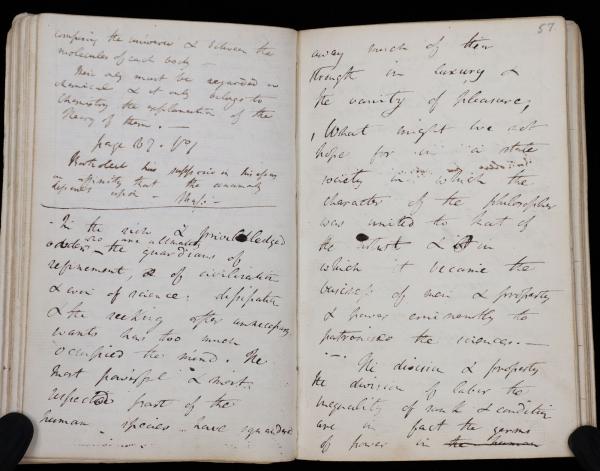 composing the universe & between the
molecules of each body —
their only must be regarded as
chemical & it only belongs to
Chemistry the explanation of the
theory of them. —
page 137. Vol
Berthollet has supposed in his essay
on affinity that the anomaly
depends upon — Mass: —
- In the rich & priviledged
orders who are ultimately the guardians of
refinement, & of civilisation
& even of science; dissipation
& the seeking after unnecessary
wants has too much
occupied the mind. The
most powerful & most
respected part of the
human species have squandered
57
away much of their
strength in luxury &
the vanity of pleasure;
What might we not
hope for in a state
society in which the
character of the philosopher
was united to that of
the artist & in
which it became the
business of men of property
& power eminently to
patronise the sciences. —
— The division of property
the division of labor the
inequality of rank & condition
are in fact the germs
of power in the human